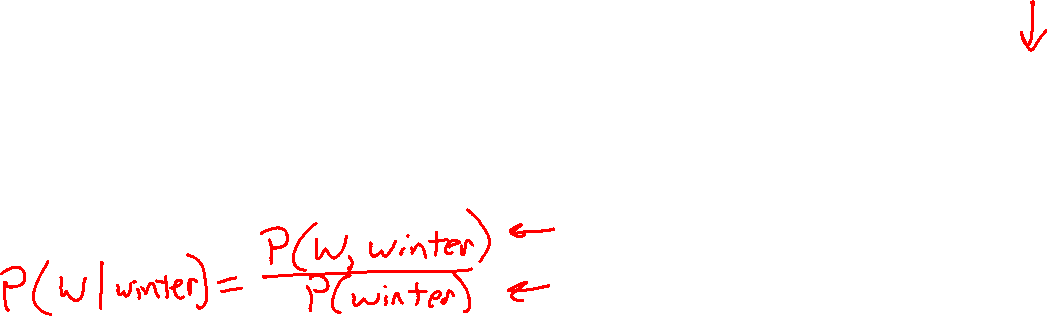 P(W | winter) = P(W, winter) ←
P(winter) ←